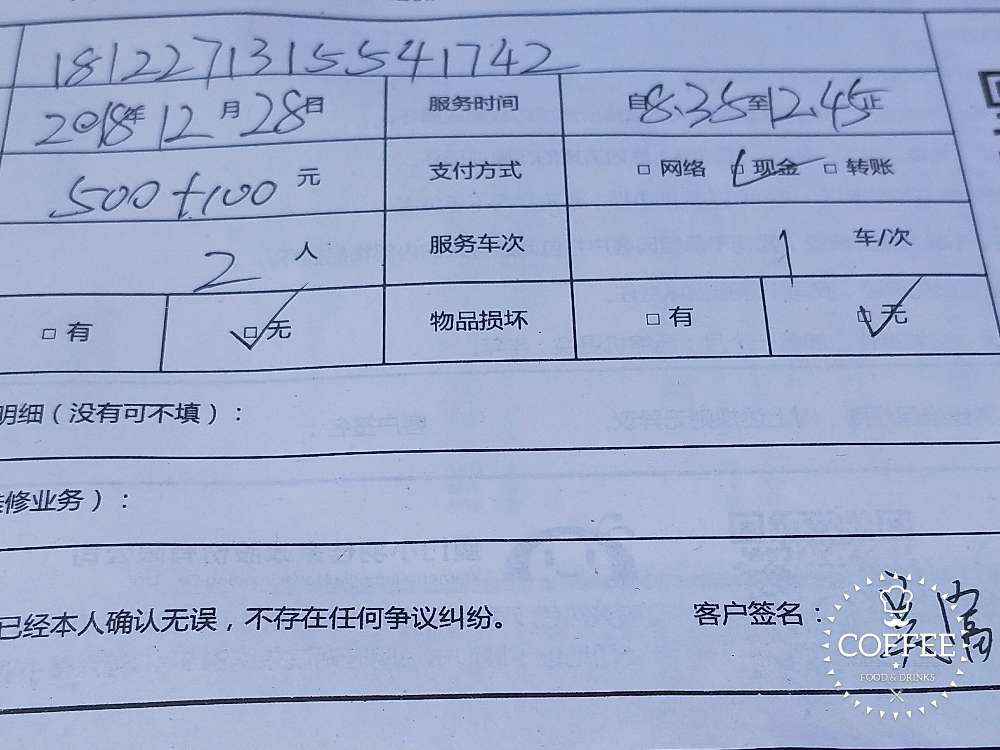 1812271315541742
2018年12月28日 服务时间 自8.35至12.45止
500+100元 支付方式 □网络 □现金 □转账
2人 服务车次 1车/次
□有 □无 物品损坏 □有 □无
明细（没有可不填）：
修业务）：
已经本人确认无误，不存在任何争议纠纷。 客户签名：
COFFEE
FOOD & DRINKS